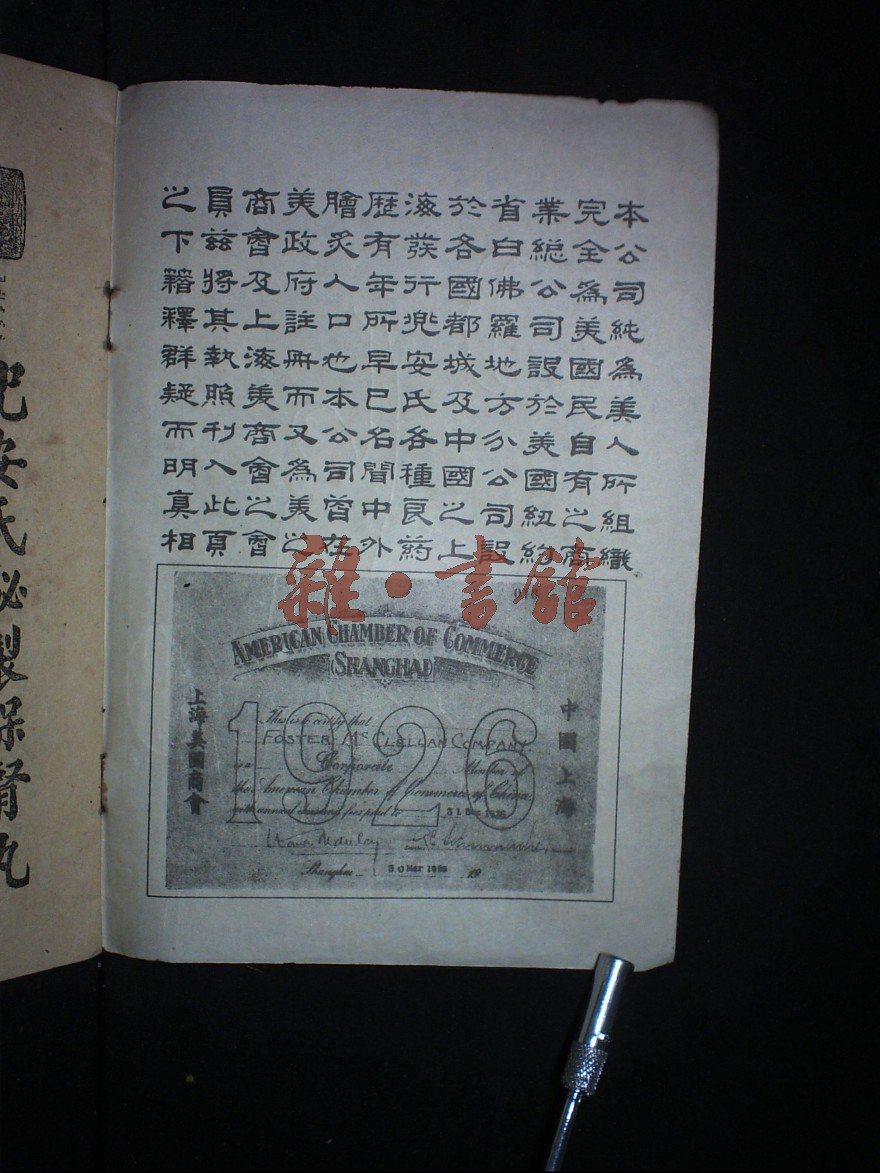 本公司純為美人所組織
完全為美國民自有之商
業緫公司設於美國紐約
省白佛羅地方分公司設
於各國都城及中國之上
海發行兜安氏各種良药
歴有年所早已名聞中外
膾炙人口也本公司曾在
美政府註冊而又為美之
商會及上海美商會之會
員兹將其執照刊入此頁
之下籍釋群疑而明真相
雜·書館
AMERICAN CHAMBER OF COMMERCE
(SHANGHAI)
中國上海
上海美國商會
1926
This is to certify that
FOSTER-McCLELLAN COMPANY
is a Corporate Member of
the American Chamber of Commerce of China
with annual membership fees paid to 31 Dec 1926
Shanghai 30 Mar 1926 19
兜安氏秘製保腎丸